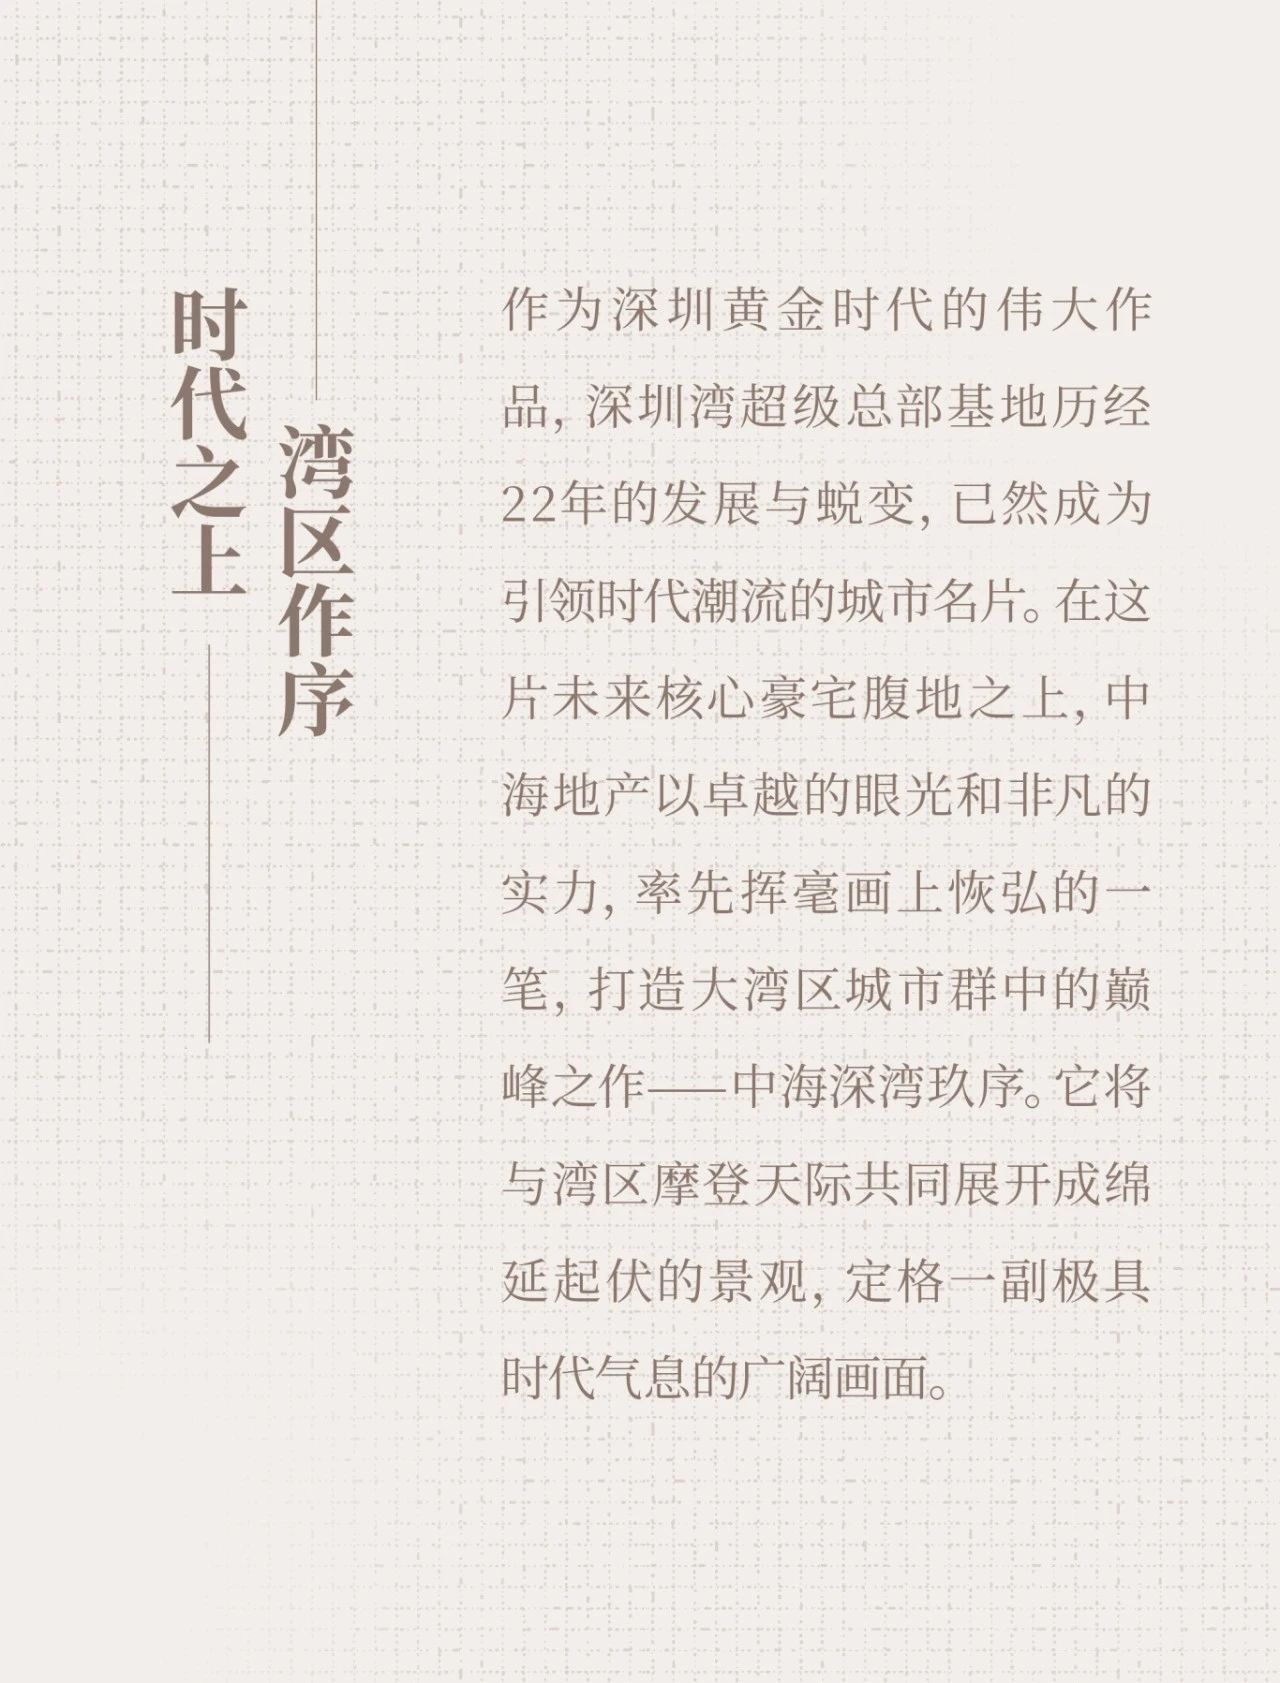 时代之上
湾区作序
作为深圳黄金时代的伟大作
品，深圳湾超级总部基地历经
22年的发展与蜕变，已然成为
引领时代潮流的城市名片。在这
片未来核心豪宅腹地之上，中
海地产以卓越的眼光和非凡的
实力，率先挥毫画上恢弘的一
笔，打造大湾区城市群中的巅
峰之作——中海深湾玖序。它将
与湾区摩登天际共同展开成绵
延起伏的景观，定格一副极具
时代气息的广阔画面。